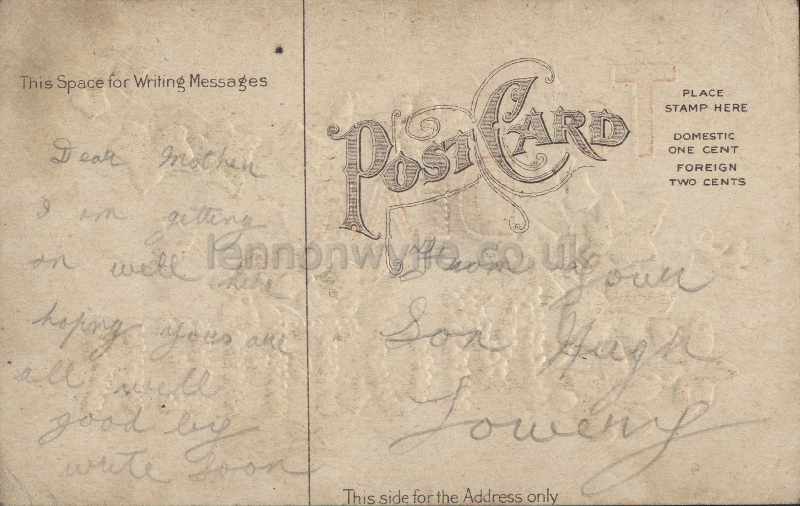 This Space for Writing Messages
Dear Mother
I am getting
on well here
hoping yous are
all well
good by
write soon
POST CARD
PLACE
STAMP HERE
DOMESTIC
ONE CENT
FOREIGN
TWO CENTS
From your
Son Hugh
Lowery
This side for the Address only
lennonwylie.co.uk